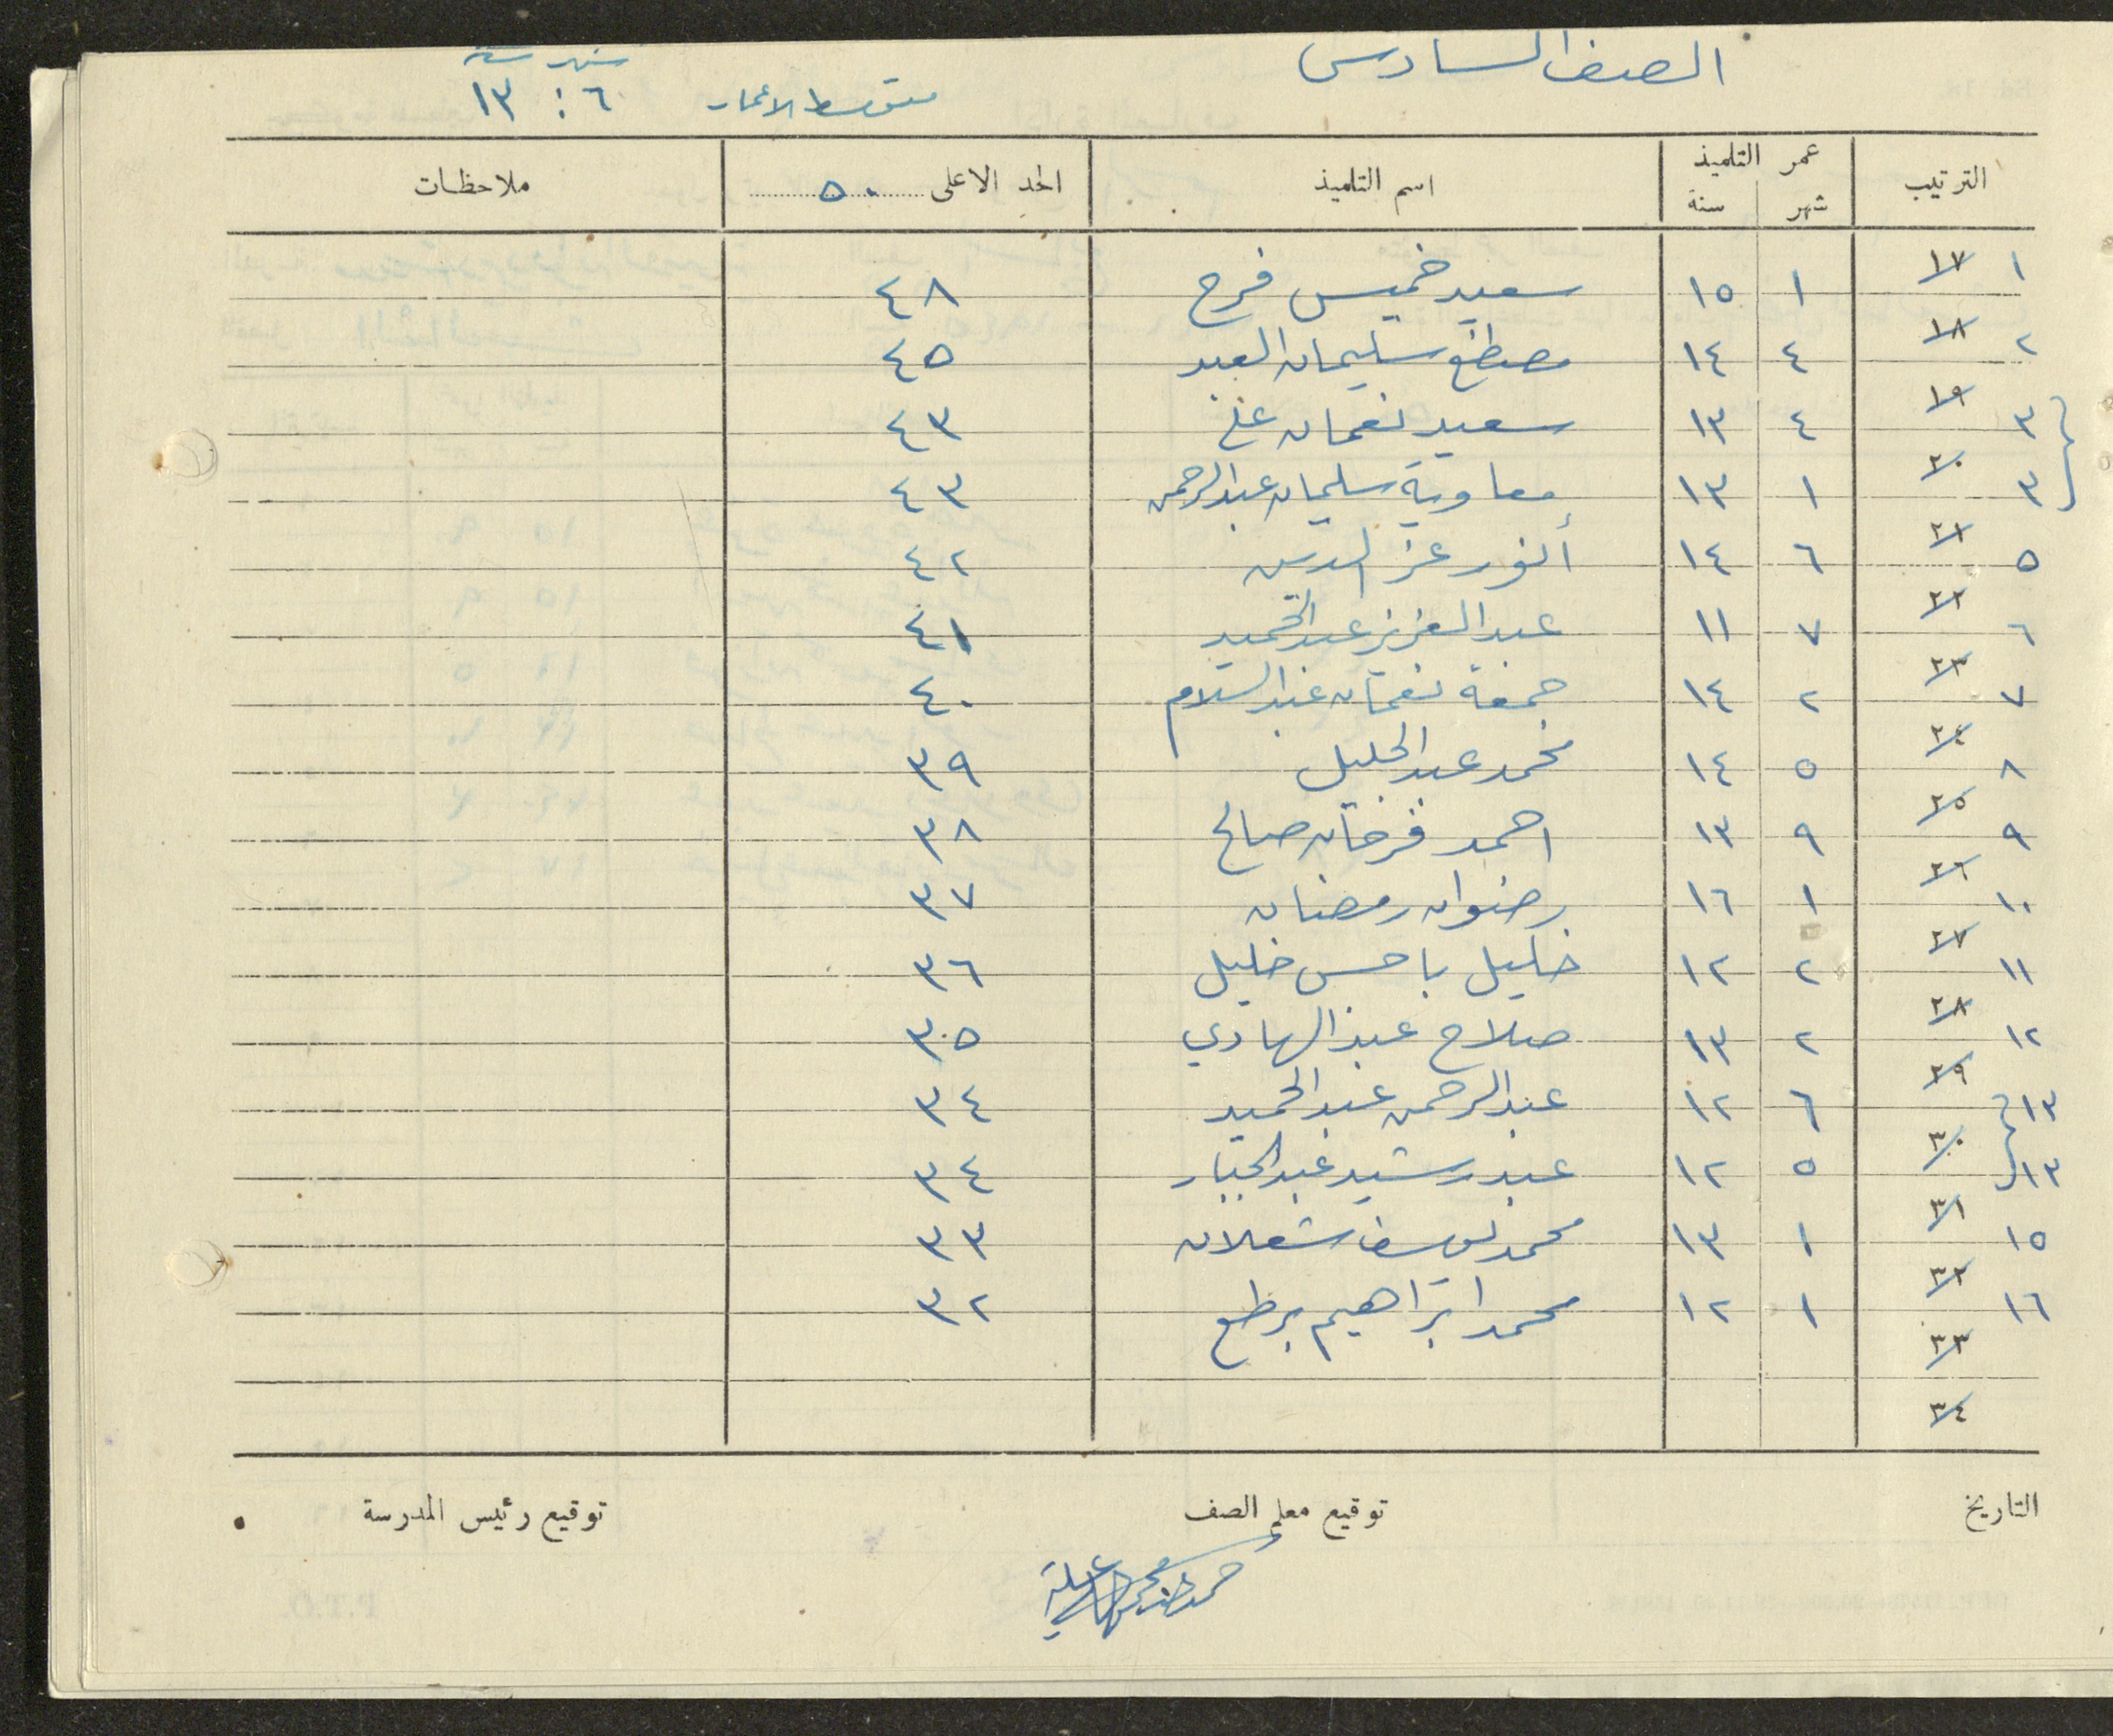 الصف السادس
شهر سنة
متوسط الاعمار ٦ : ١٣
الترتيب عمر التلميذ اسم التلميذ الحد الاعلى ٥٠ ملاحظات
شهر سنة
١ ١٧ ١ ١٥ سعيد خميس فرح ٤٨
٢ ١٨ ٤ ١٤ مصطفى سليمان العبد ٤٥
٣ ١٩ ٤ ١٣ سعيد نعمان ٤٣
٣ ٢٠ ١ ١٣ معاوية سليمان عبد الرحمن ٤٣
٥ ٢١ ٦ ١٤ أنور عز الدين ٤٢
٦ ٢٢ ٧ ١١ عبد العزيز عبد الحميد ٤١
٧ ٢٣ ٢ ١٤ جمعة نعمان عبد السلام ٤٠
٨ ٢٤ ٥ ١٤ محمد عبد الجليل ٣٩
٩ ٢٥ ٩ ١٣ احمد فرحان صالح ٣٨
١٠ ٢٦ ١ ١٦ رضوان رمضان ٣٧
١١ ٢٧ ٢ ١٢ خليل ياحسن خليل ٣٦
١٢ ٢٨ ٢ ١٣ صلاح عبد الهادي ٣٥
١٣ ٢٩ ٦ ١٢ عبد الرحمن عبد الحميد ٣٤
١٣ ٣٠ ٥ ١٢ عبد رشيد عبد الجبار ٣٤
١٥ ٣١ ١ ١٣ محمد يوسف شعلان ٣٣
١٦ ٣٢ ١ ١٢ محمد ابراهيم برطع ٣٢
٣٣
٣٤
التاريخ توقيع معلم الصف توقيع رئيس المدرسة